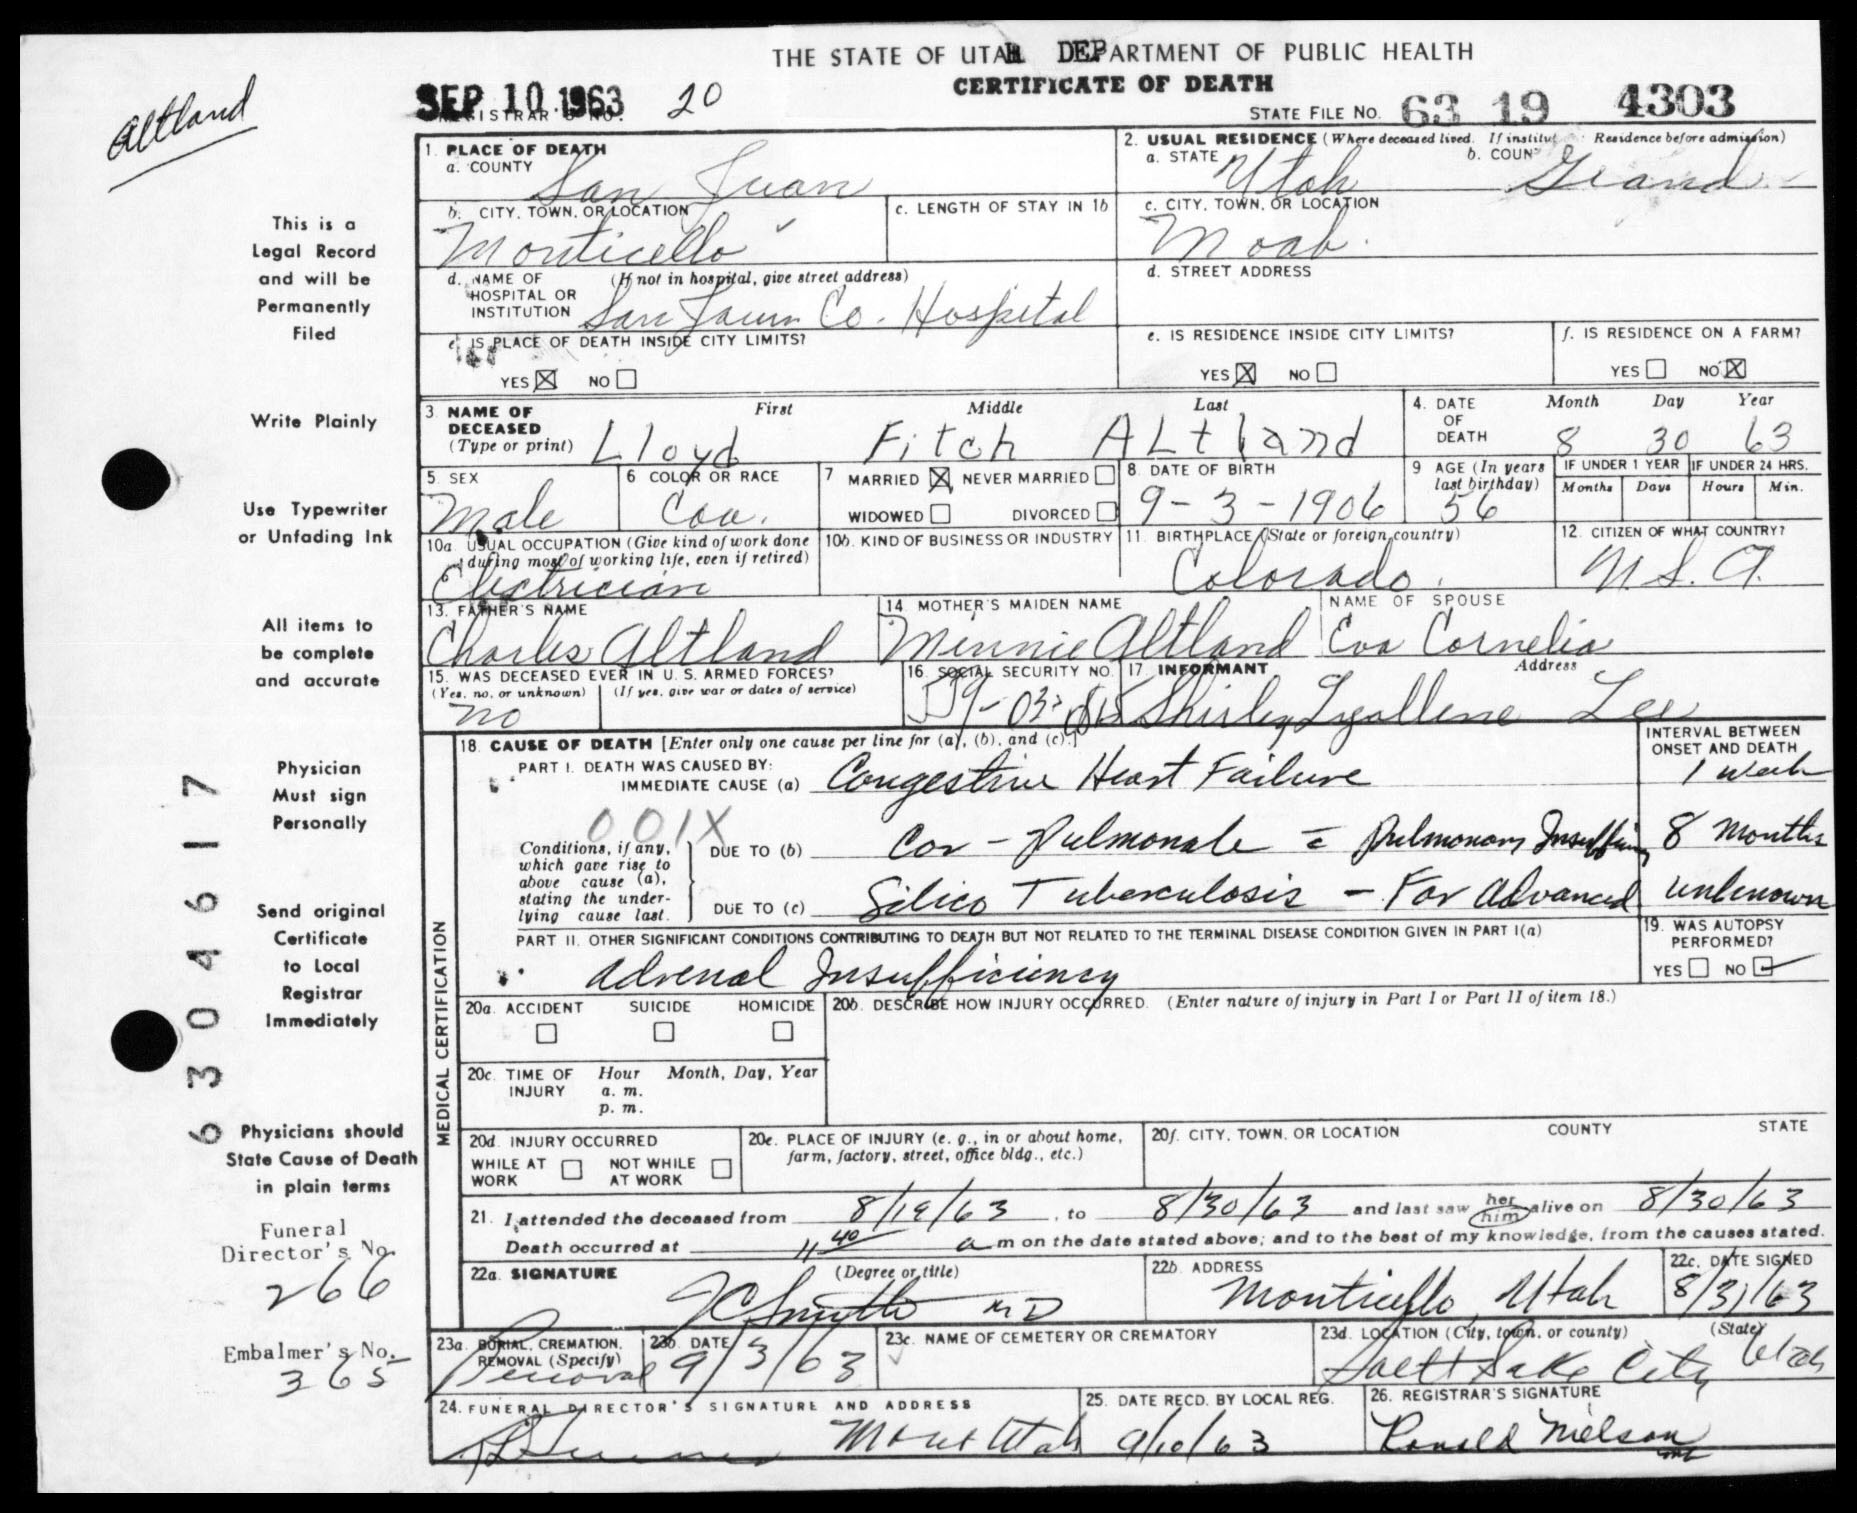 THE STATE OF UTAH DEPARTMENT OF PUBLIC HEALTH
CERTIFICATE OF DEATH
Altland
SEP 10 1963 20
REGISTRAR'S NO.
STATE FILE NO. 63 19 4303
1. PLACE OF DEATH
a. COUNTY
San Juan
2. USUAL RESIDENCE (Where deceased lived. If institut Residence before admission)
a. STATE Utah b. COUN Grand
b. CITY, TOWN, OR LOCATION
Monticello
c. LENGTH OF STAY IN 1b
c. CITY, TOWN, OR LOCATION
Moab
d. NAME OF (If not in hospital, give street address)
HOSPITAL OR
INSTITUTION San Jaun Co. Hospital
d. STREET ADDRESS
e. IS PLACE OF DEATH INSIDE CITY LIMITS?
YES NO
e. IS RESIDENCE INSIDE CITY LIMITS?
YES NO
f. IS RESIDENCE ON A FARM?
YES NO
3. NAME OF DECEASED (Type or print)
First Middle Last
Lloyd Fitch Altland
4. DATE OF DEATH
Month Day Year
8 30 63
5. SEX
Male
6 COLOR OR RACE
Cau.
7 MARRIED NEVER MARRIED
WIDOWED DIVORCED
8. DATE OF BIRTH
9-3-1906
9 AGE (In years last birthday)
56
IF UNDER 1 YEAR
Months Days
IF UNDER 24 HRS.
Hours Min.
10a. USUAL OCCUPATION (Give kind of work done during most of working life, even if retired)
Electrician
10b. KIND OF BUSINESS OR INDUSTRY
11. BIRTHPLACE (State or foreign country)
Colorado
12. CITIZEN OF WHAT COUNTRY?
U.S.A.
13. FATHER'S NAME
Charles Altland
14. MOTHER'S MAIDEN NAME
Minnie Altland
NAME OF SPOUSE
Eva Cornelia
15. WAS DECEASED EVER IN U.S. ARMED FORCES?
(Yes, no, or unknown) (If yes, give war or dates of service)
no
16. SOCIAL SECURITY NO.
17. INFORMANT Address
Shirley Lee
18. CAUSE OF DEATH [Enter only one cause per line for (a), (b), and (c).]
PART I. DEATH WAS CAUSED BY:
IMMEDIATE CAUSE (a) Congestive Heart Failure
INTERVAL BETWEEN ONSET AND DEATH
1 week
001X
Conditions, if any, which gave rise to above cause (a), stating the underlying cause last.
DUE TO (b) Cor-Pulmonale = Pulmonary 8 months
DUE TO (c) Silico Tuberculosis - Far Advanced unknown
PART II. OTHER SIGNIFICANT CONDITIONS CONTRIBUTING TO DEATH BUT NOT RELATED TO THE TERMINAL DISEASE CONDITION GIVEN IN PART I(a)
Adrenal Insufficiency
19. WAS AUTOPSY PERFORMED?
YES NO
MEDICAL CERTIFICATION
20a. ACCIDENT SUICIDE HOMICIDE
20b. DESCRIBE HOW INJURY OCCURRED. (Enter nature of injury in Part I or Part II of item 18.)
20c. TIME OF INJURY
Hour Month, Day, Year
a. m.
p. m.
20d. INJURY OCCURRED
WHILE AT WORK NOT WHILE AT WORK
20e. PLACE OF INJURY (e. g., in or about home, farm, factory, street, office bldg., etc.)
20f. CITY, TOWN, OR LOCATION COUNTY STATE
21. I attended the deceased from 8/19/63, to 8/30/63 and last saw her him alive on 8/30/63
Death occurred at 11 40 a m on the date stated above; and to the best of my knowledge, from the causes stated.
22a. SIGNATURE (Degree or title)
JC Smith MD
22b. ADDRESS
Monticello, Utah
22c. DATE SIGNED
8/31/63
23a. BURIAL, CREMATION, REMOVAL (Specify)
23b. DATE
9/3/63
23c. NAME OF CEMETERY OR CREMATORY
23d. LOCATION (City, town, or county) (State)
Salt Lake City Utah
24. FUNERAL DIRECTOR'S SIGNATURE AND ADDRESS
Utah
25. DATE RECD. BY LOCAL REG.
9/10/63
26. REGISTRAR'S SIGNATURE
Ronald Nielson
This is a
Legal Record
and will be
Permanently
Filed
Write Plainly
Use Typewriter
or Unfading Ink
All items to
be complete
and accurate
Physician
Must sign
Personally
Send original
Certificate
to Local
Registrar
Immediately
Physicians should
State Cause of Death
in plain terms
Funeral
Director's No.
266
Embalmer's No.
365
6304617